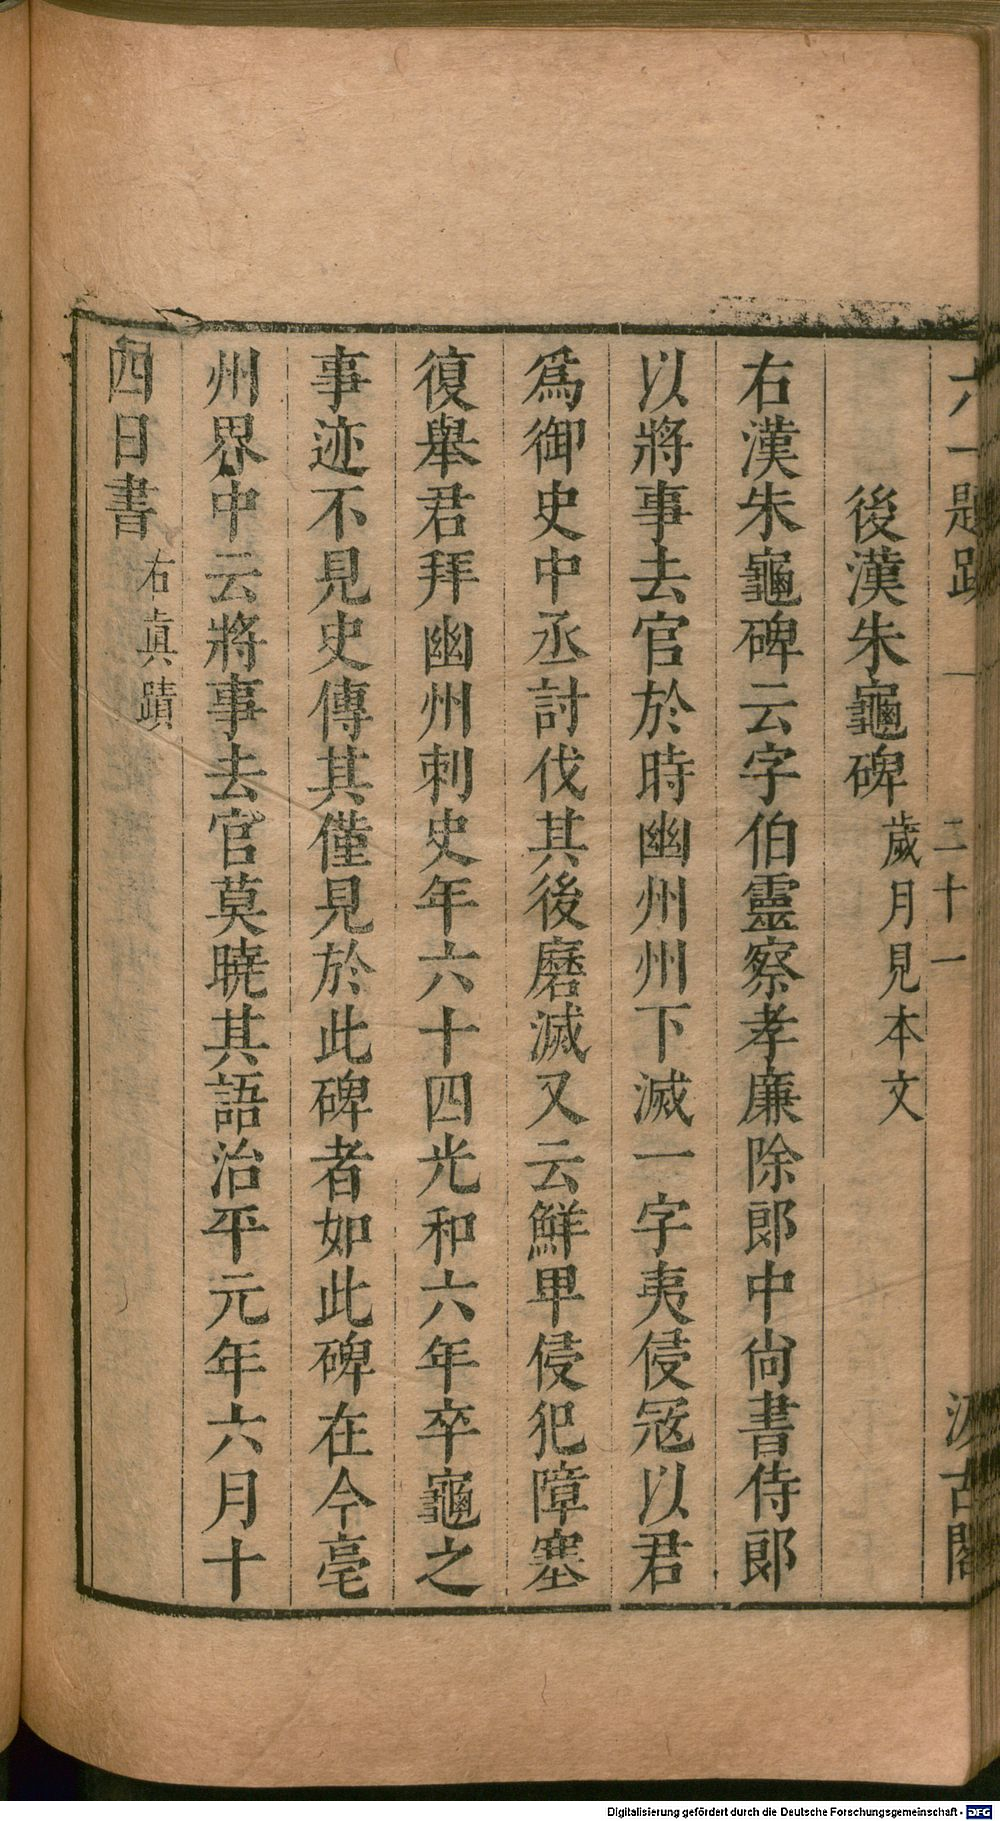 六一題跋 一 二十一 汲古閣
後漢朱龜碑 歲月見本文
右漢朱龜碑云字伯靈察孝廉除郎中尙書侍郎
以將事去官於時幽州州下滅一字夷侵寇以君
爲御史中丞討伐其後磨滅又云鮮卑侵犯障塞
復舉君拜幽州刺史年六十四光和六年卒龜之
事迹不見史傳其僅見於此碑者如此碑在今亳
州界中云將事去官莫曉其語治平元年六月十
四日書 右眞蹟
Digitalisierung gefördert durch die Deutsche Forschungsgemeinschaft - DFG